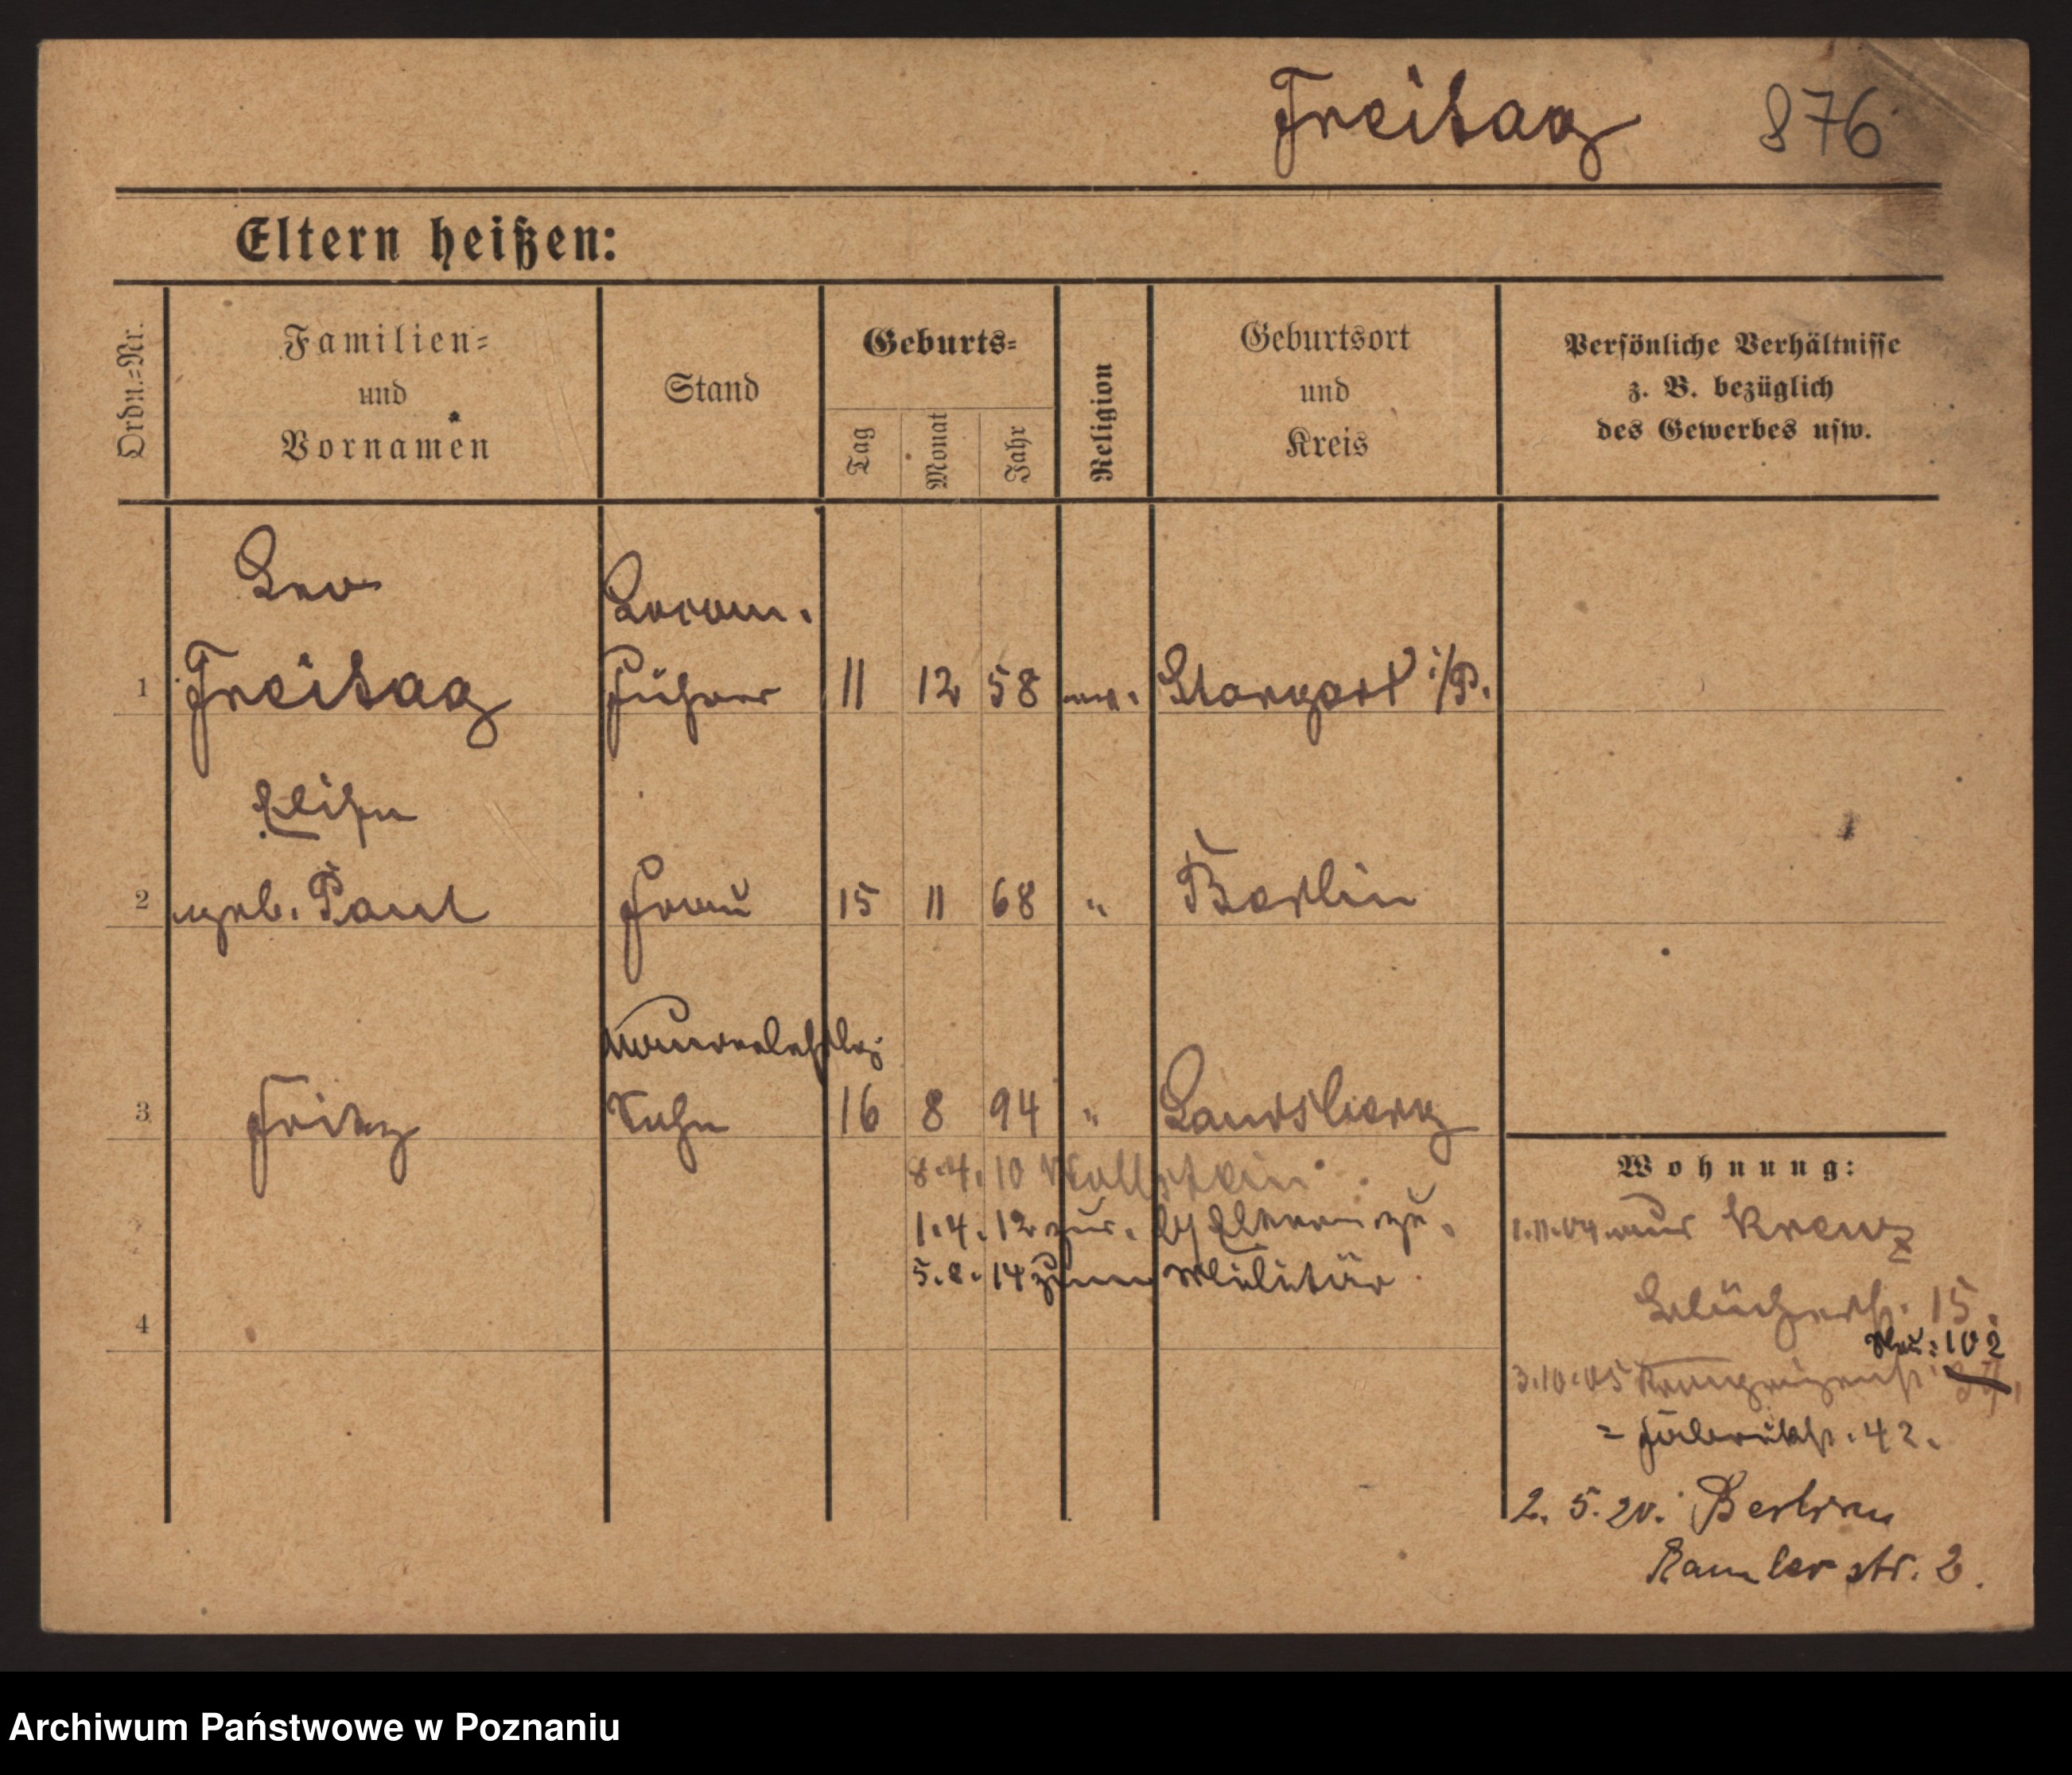 Freitag 876
Eltern heißen:
Ordn.=Nr.
Familien=
und
Vornamen
Stand
Geburts=
Tag
Monat
Jahr
Religion
Geburtsort
und
Kreis
Persönliche Verhältnisse
z. B. bezüglich
des Gewerbes usw.
Leo
Locom.
1 Freitag Führer 11 12 58 ev. Stargard i/P.
Elise
2 geb. Paul Frau 15 11 68 " Berlin
3 Fritz Sohn 16 8 94 " Landsberg
8.4.10 Wollstein
1.4.12 zur. Eltern
5.8.14 zum Militär
4
Wohnung:
1.11.04 aus Kreuz
Blücherst. 15.
Neu: 102
3.10.05
= Fabrikst. 42.
2. 5. 20. Berlin
Ramlerstr. 2.
Archiwum Państwowe w Poznaniu